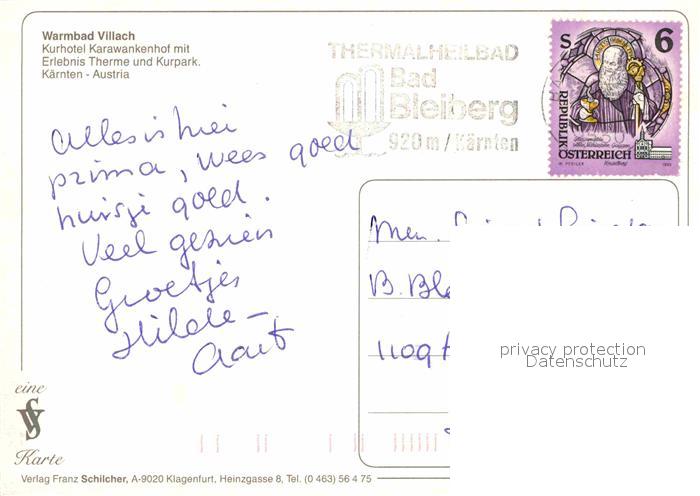 Warmbad Villach
Kurhotel Karawankenhof mit
Erlebnis Therme und Kurpark.
Kärnten - Austria
THERMALHEILBAD
Bad
Bleiberg
920 m / Kärnten
S 6
REPUBLIK
ÖSTERREICH
Alles is hier
prima, wees goed
huisje goed.
Veel gezien
Groetjes
Hilde -
Aart
B. Bl
1109
privacy protection
Datenschutz
eine
Karte
Verlag Franz Schilcher, A-9020 Klagenfurt, Heinzgasse 8, Tel. (0 463) 56 4 75